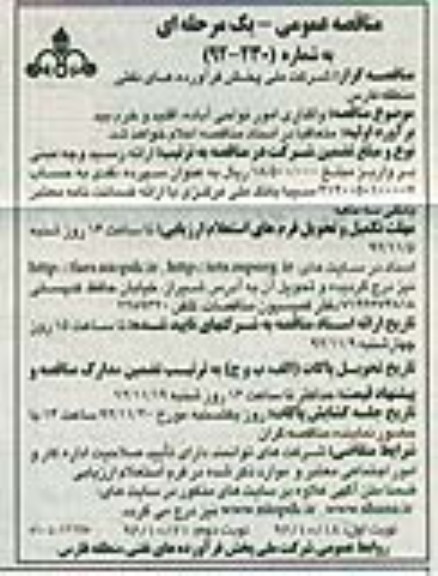 مناقصه عمومی - یک مرحله ای
به شماره (۲۳۰-۹۲)
مناقصه گزار: شرکت ملی پخش فرآورده های نفتی
منطقه فارس
موضوع مناقصه: واگذاری امور نواحی آباده، اقلید و خرم بید
برآورد اولیه: متعاقبا در اسناد مناقصه اعلام خواهد شد.
نوع و مبلغ تضمین شرکت در مناقصه به ترتیب: ارائه رسید وجه مبنی
بر واریز مبلغ ریال به عنوان سپرده نقدی به حساب
سیبا بانک ملی مرکزی یا ارائه ضمانت نامه معتبر
بانکی سه ماهه
مهلت تکمیل و تحویل فرم های استعلام ارزیابی: تا ساعت ۱۶ روز شنبه
۹۲/۱۱/۵
اسناد در سایت های
نیز درج گردیده و تحویل آن به آدرس شیراز، خیابان حافظ
دفتر کمیسیون مناقصات، تلفن
تاریخ ارائه اسناد مناقصه به شرکتهای تایید شده: تا ساعت ۱۵ روز
چهارشنبه ۹۲/۱۱/۹
تاریخ تحویل پاکات (الف، ب و ج) به ترتیب تضمین مدارک مناقصه و
پیشنهاد قیمت: حداکثر تا ساعت ۱۶ روز شنبه ۹۲/۱۱/۱۹
تاریخ جلسه گشایش پاکات: روز یکشنبه مورخ ۹۲/۱۱/۲۰ ساعت ۱۴ با
حضور نماینده مناقصه گران
شرایط متقاضی: شرکت های توانمند دارای تأیید صلاحیت اداره کار و
امور اجتماعی معتبر و موارد ذکر شده در فرم استعلام ارزیابی
ضمنا متن آگهی علاوه بر سایت های مذکور در سایت های:
www.shana.ir و www.niopdc.ir نیز درج می گردد
نوبت اول: ۹۲/۱۰/۱۸ نوبت دوم: ۹۲/۱۰/۲۱
روابط عمومی شرکت ملی پخش فرآورده های نفتی منطقه فارس